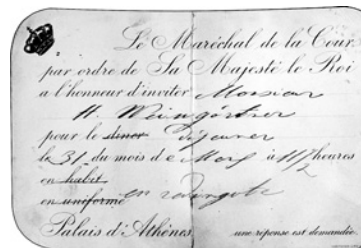 Le Maréchal de la Cour
par ordre de Sa Majesté le Roi
a l'honneur d'inviter Monsieur
H. Weingärtner
pour le diner déjeuner
le 31 du mois de Mars à 11 1/2 heures
en habit
en uniforme en redingote
Palais d'Athènes une réponse est demandée